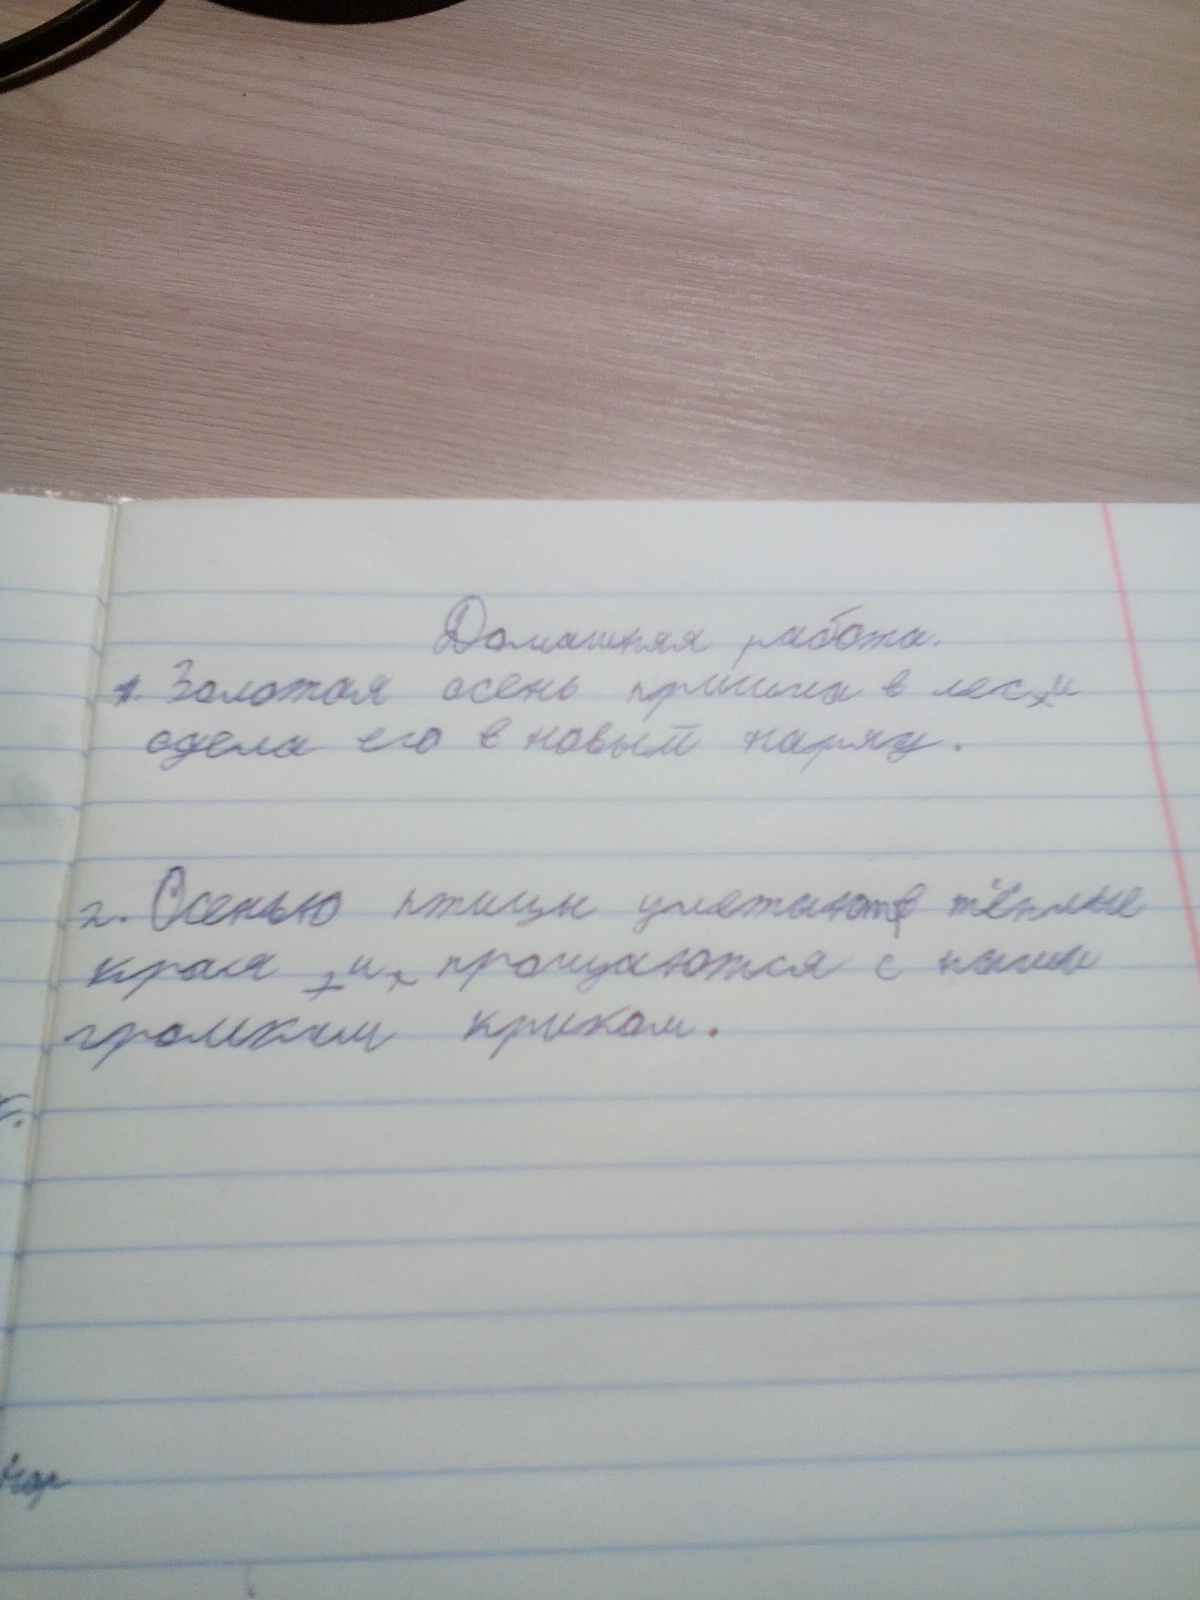 Домашняя работа.
1. Золотая осень пришла в лес и
одела его в новый наряд.
2. Осенью птицы улетают в тёплые
края и прощаются с нами
громким криком.